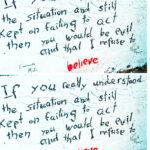 the situation and still
Kept on failing to act
then you would be evil
and that I refuse to
believe
If you really understood
the situation and still
Kept on failing to act
then you would be evil
and that I refuse to